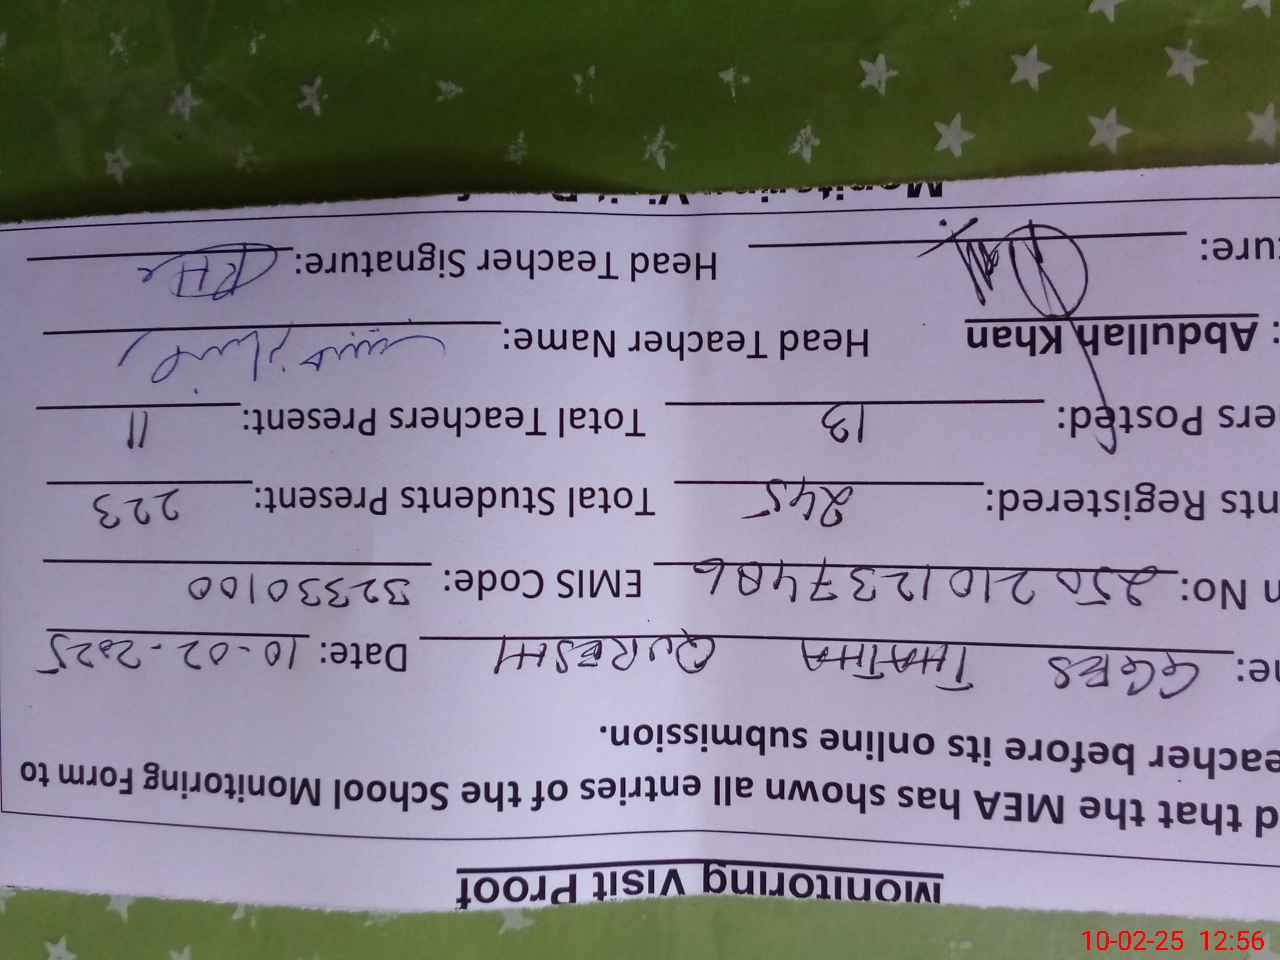 Monitoring Visit Proof
d that the MEA has shown all entries of the School Monitoring Form to
eacher before its online submission.
e: GGES THATHA QURESHI Date: 10-02-2025
n No: 2502101237486 EMIS Code: 32330100
nts Registered: 245 Total Students Present: 223
ers Posted: 13 Total Teachers Present: 11
: Abdullah Khan Head Teacher Name:
ture: Head Teacher Signature:
Monitoring Visit Proof
10-02-25 12:56